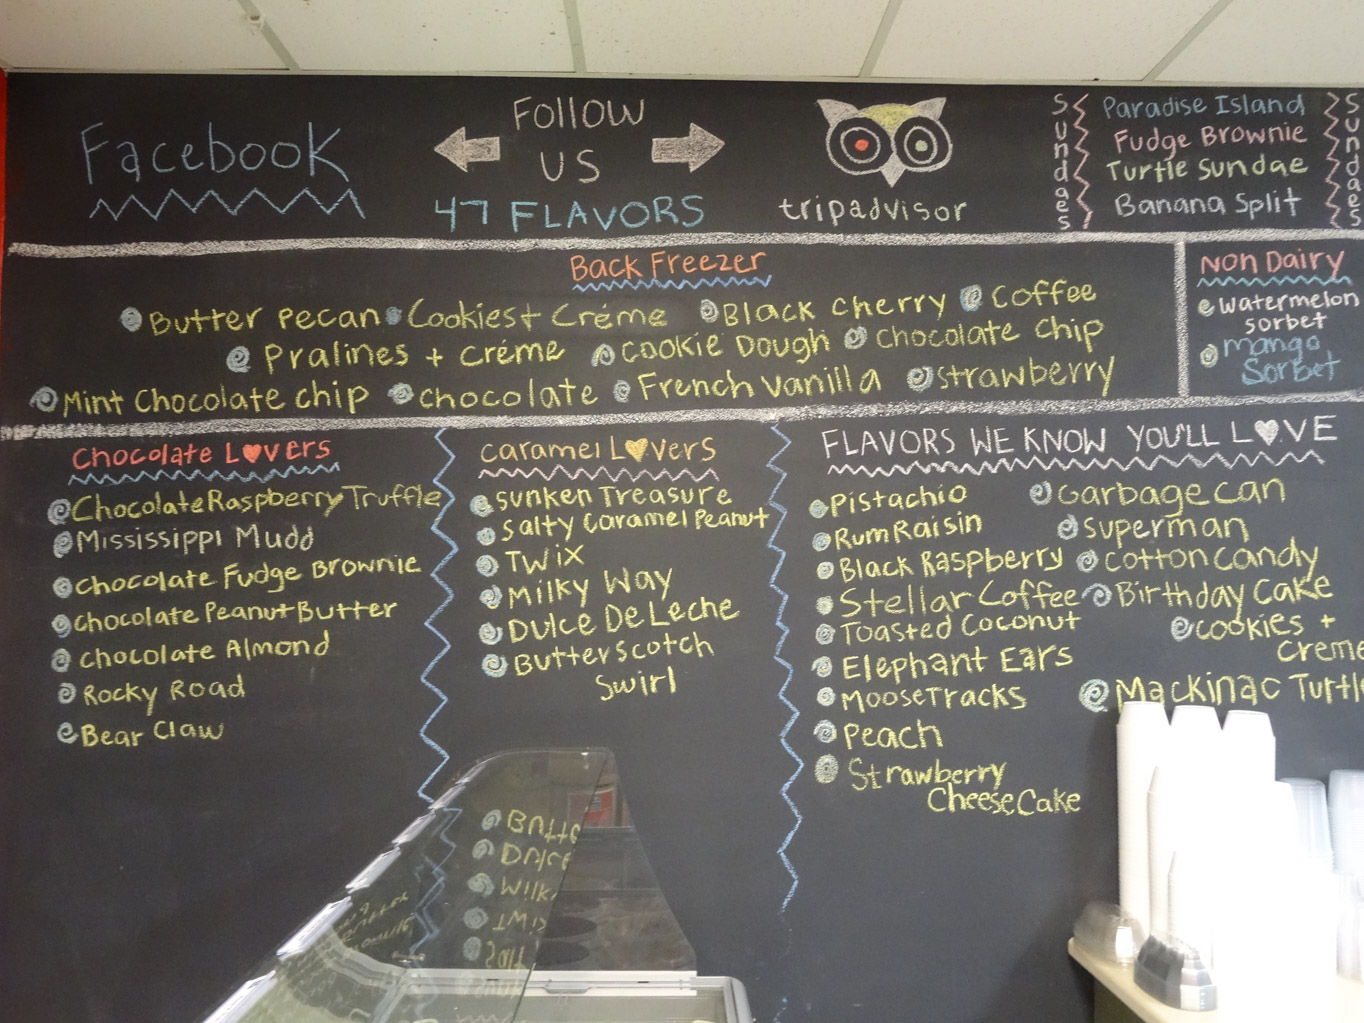 Facebook
Follow
US
47 FLAVORS
tripadvisor
Sundaes
Paradise Island
Fudge Brownie
Turtle Sundae
Banana Split
Sundaes
Back Freezer
Butter Pecan Cookies + Créme Black Cherry Coffee
Pralines + Créme Cookie Dough Chocolate Chip
Mint Chocolate chip chocolate French Vanilla Strawberry
Non Dairy
Watermelon
sorbet
mango
Sorbet
Chocolate Lovers
Chocolate Raspberry Truffle
Mississippi Mudd
Chocolate Fudge Brownie
Chocolate Peanut Butter
Chocolate Almond
Rocky Road
Bear Claw
Caramel Lovers
Sunken Treasure
Salty Caramel Peanut
Twix
Milky Way
Dulce De Leche
Butterscotch
Swirl
FLAVORS WE KNOW YOU'LL LOVE
Pistachio
Rum Raisin
Black Raspberry
Stellar Coffee
Toasted Coconut
Elephant Ears
Moose Tracks
Peach
Strawberry
Cheese Cake
Garbage Can
Superman
Cotton Candy
Birthday Cake
Cookies +
Creme
Mackinac Turtle